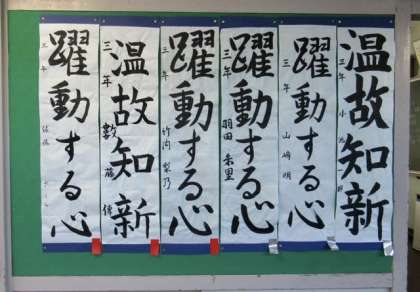 温故知新
三年
躍動する心
三年 山崎明
躍動する心
三年 羽田
躍動する心
三年 竹内 梨乃
温故知新
三年
躍動する心
三年